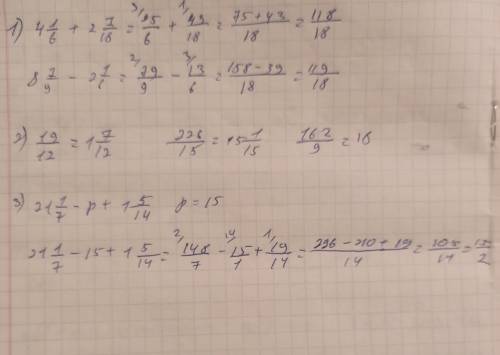 1) 4 1/6 + 2 7/18 = 3/ 25/6 + 1/ 43/18 = 75+43/18 = 118/18
8 7/9 - 2 1/6 = 2/ 79/9 - 3/ 13/6 = 158-39/18 = 119/18
2) 19/12 = 1 7/12 226/15 = 15 1/15 162/9 = 18
3) 21 1/7 - p + 1 5/14 p = 15
21 1/7 - 15 + 1 5/14 = 2/ 148/7 - 14/ 15/1 + 1/ 19/14 = 296-210+19/14 = 105/14 = 15/2